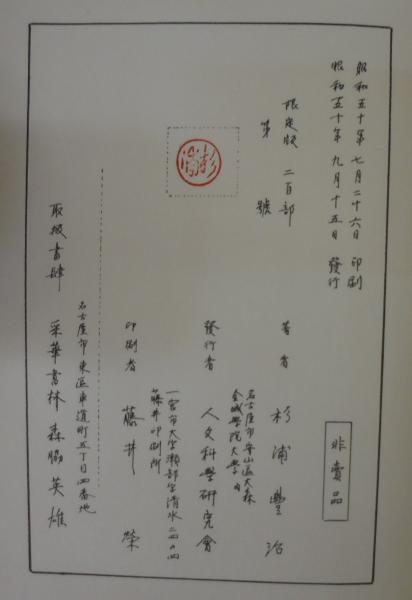 昭和五十年七月二十六日 印刷
昭和五十年九月十五日 發行
限定版 二百部
第 號
非賣品
著者 杉浦豐治
名古屋市守山區大森
金城學院大學內
發行者 人文科學研究會
一宮市大字瀬部字清水二四ノ四
藤井印刷所
印刷者 藤井榮
名古屋市東區車道町五丁目四番地
取扱書肆 采華書林 森脇英雄